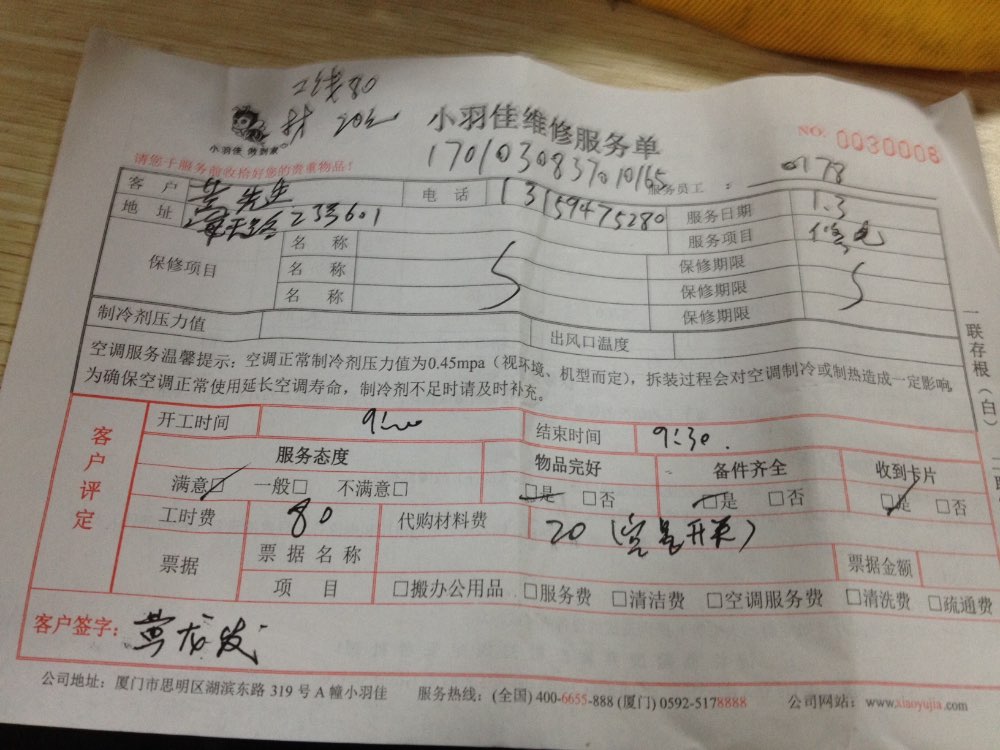 工钱80
材 20元
小羽佳 做到家
小羽佳维修服务单
NO. 0030008
170103083701065
请您于服务前收拾好您的贵重物品！
服务员工： 0178
客户 黄先生 电话 13159475280 服务日期 1.3
地址 233601 服务项目 修电
保修项目 名称 保修期限
名称 保修期限
名称 保修期限
制冷剂压力值 出风口温度
空调服务温馨提示：空调正常制冷剂压力值为0.45mpa（视环境、机型而定），拆装过程会对空调制冷或制热造成一定影响，
为确保空调正常使用延长空调寿命，制冷剂不足时请及时补充。
一联存根（白）
客户评定
开工时间 9:00 结束时间 9:30.
服务态度 物品完好 备件齐全 收到卡片
满意□ 一般□ 不满意□ □是 □否 □是 □否 □是 □否
工时费 80 代购材料费 20（空气开关）
票据 票据名称 票据金额
项目 □搬办公用品 □服务费 □清洁费 □空调服务费 □清洗费 □疏通费
客户签字：黄龙发
公司地址：厦门市思明区湖滨东路 319 号 A 幢小羽佳 服务热线：(全国) 400-6655-888 (厦门) 0592-5178888 公司网站：www.xiaoyujia.com